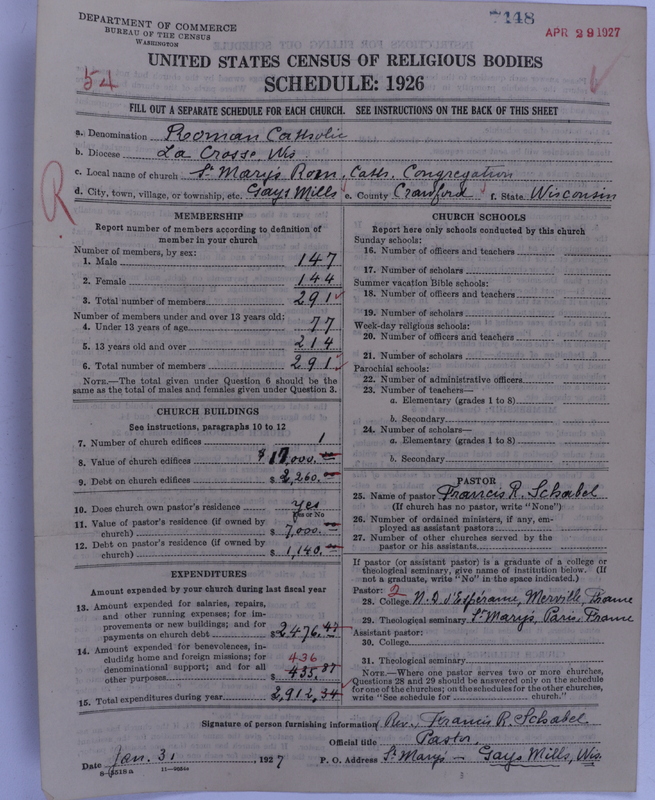 DEPARTMENT OF COMMERCE
BUREAU OF THE CENSUS
WASHINGTON
7148
APR 29 1927
UNITED STATES CENSUS OF RELIGIOUS BODIES
54
SCHEDULE: 1926
FILL OUT A SEPARATE SCHEDULE FOR EACH CHURCH. SEE INSTRUCTIONS ON THE BACK OF THIS SHEET
a. Denomination Roman Catholic
b. Diocese La Crosse, Wis
c. Local name of church St Marys Rom. Cath. Congregation
d. City, town, village, or township, etc. Gays Mills e. County Crawford f. State Wisconsin
R.
MEMBERSHIP
Report number of members according to definition of
member in your church
Number of members, by sex:
1. Male 147
2. Female 144
3. Total number of members 291
Number of members under and over 13 years old:
4. Under 13 years of age 77
5. 13 years old and over 214
6. Total number of members 291
NOTE.—The total given under Question 6 should be the
same as the total of males and females given under Question 3.
CHURCH BUILDINGS
See instructions, paragraphs 10 to 12
7. Number of church edifices 1
8. Value of church edifices $ 17,000.
9. Debt on church edifices $ 2,260.
10. Does church own pastor's residence yes
Yes or No
11. Value of pastor's residence (if owned by
church) $ 7,000.
12. Debt on pastor's residence (if owned by
church) $ 1,140.
EXPENDITURES
Amount expended by your church during last fiscal year
13. Amount expended for salaries, repairs,
and other running expenses; for im-
provements or new buildings; and for
payments on church debt $ 2476.47
14. Amount expended for benevolences, in-
cluding home and foreign missions; for
denominational support; and for all
other purposes $ 435.87
436
15. Total expenditures during year 2,912.34
CHURCH SCHOOLS
Report here only schools conducted by this church
Sunday schools:
16. Number of officers and teachers
17. Number of scholars
Summer vacation Bible schools:
18. Number of officers and teachers
19. Number of scholars
Week-day religious schools:
20. Number of officers and teachers
21. Number of scholars
Parochial schools:
22. Number of administrative officers
23. Number of teachers—
a. Elementary (grades 1 to 8)
b. Secondary
24. Number of scholars—
a. Elementary (grades 1 to 8)
b. Secondary
PASTOR
25. Name of pastor Francis R. Schabel
(If church has no pastor, write "None")
26. Number of ordained ministers, if any, em-
ployed as assistant pastors
27. Number of other churches served by the
pastor or his assistants
If pastor (or assistant pastor) is a graduate of a college or
theological seminary, give name of institution below. (If
not a graduate, write "No" in the space indicated.)
Pastor: 2
28. College N. D. d'Esperance, Merville, France
29. Theological seminary St Marys, Paris, France
Assistant pastor:
30. College
31. Theological seminary
NOTE.—Where one pastor serves two or more churches,
Questions 28 and 29 should be answered only on the schedule
for one of the churches; on the schedules for the other churches,
write "See schedule for church."
Signature of person furnishing information Rev. Francis R. Schabel
Official title Pastor,
Date Jan. 31, 1927 P. O. Address St Marys — Gays Mills, Wis.